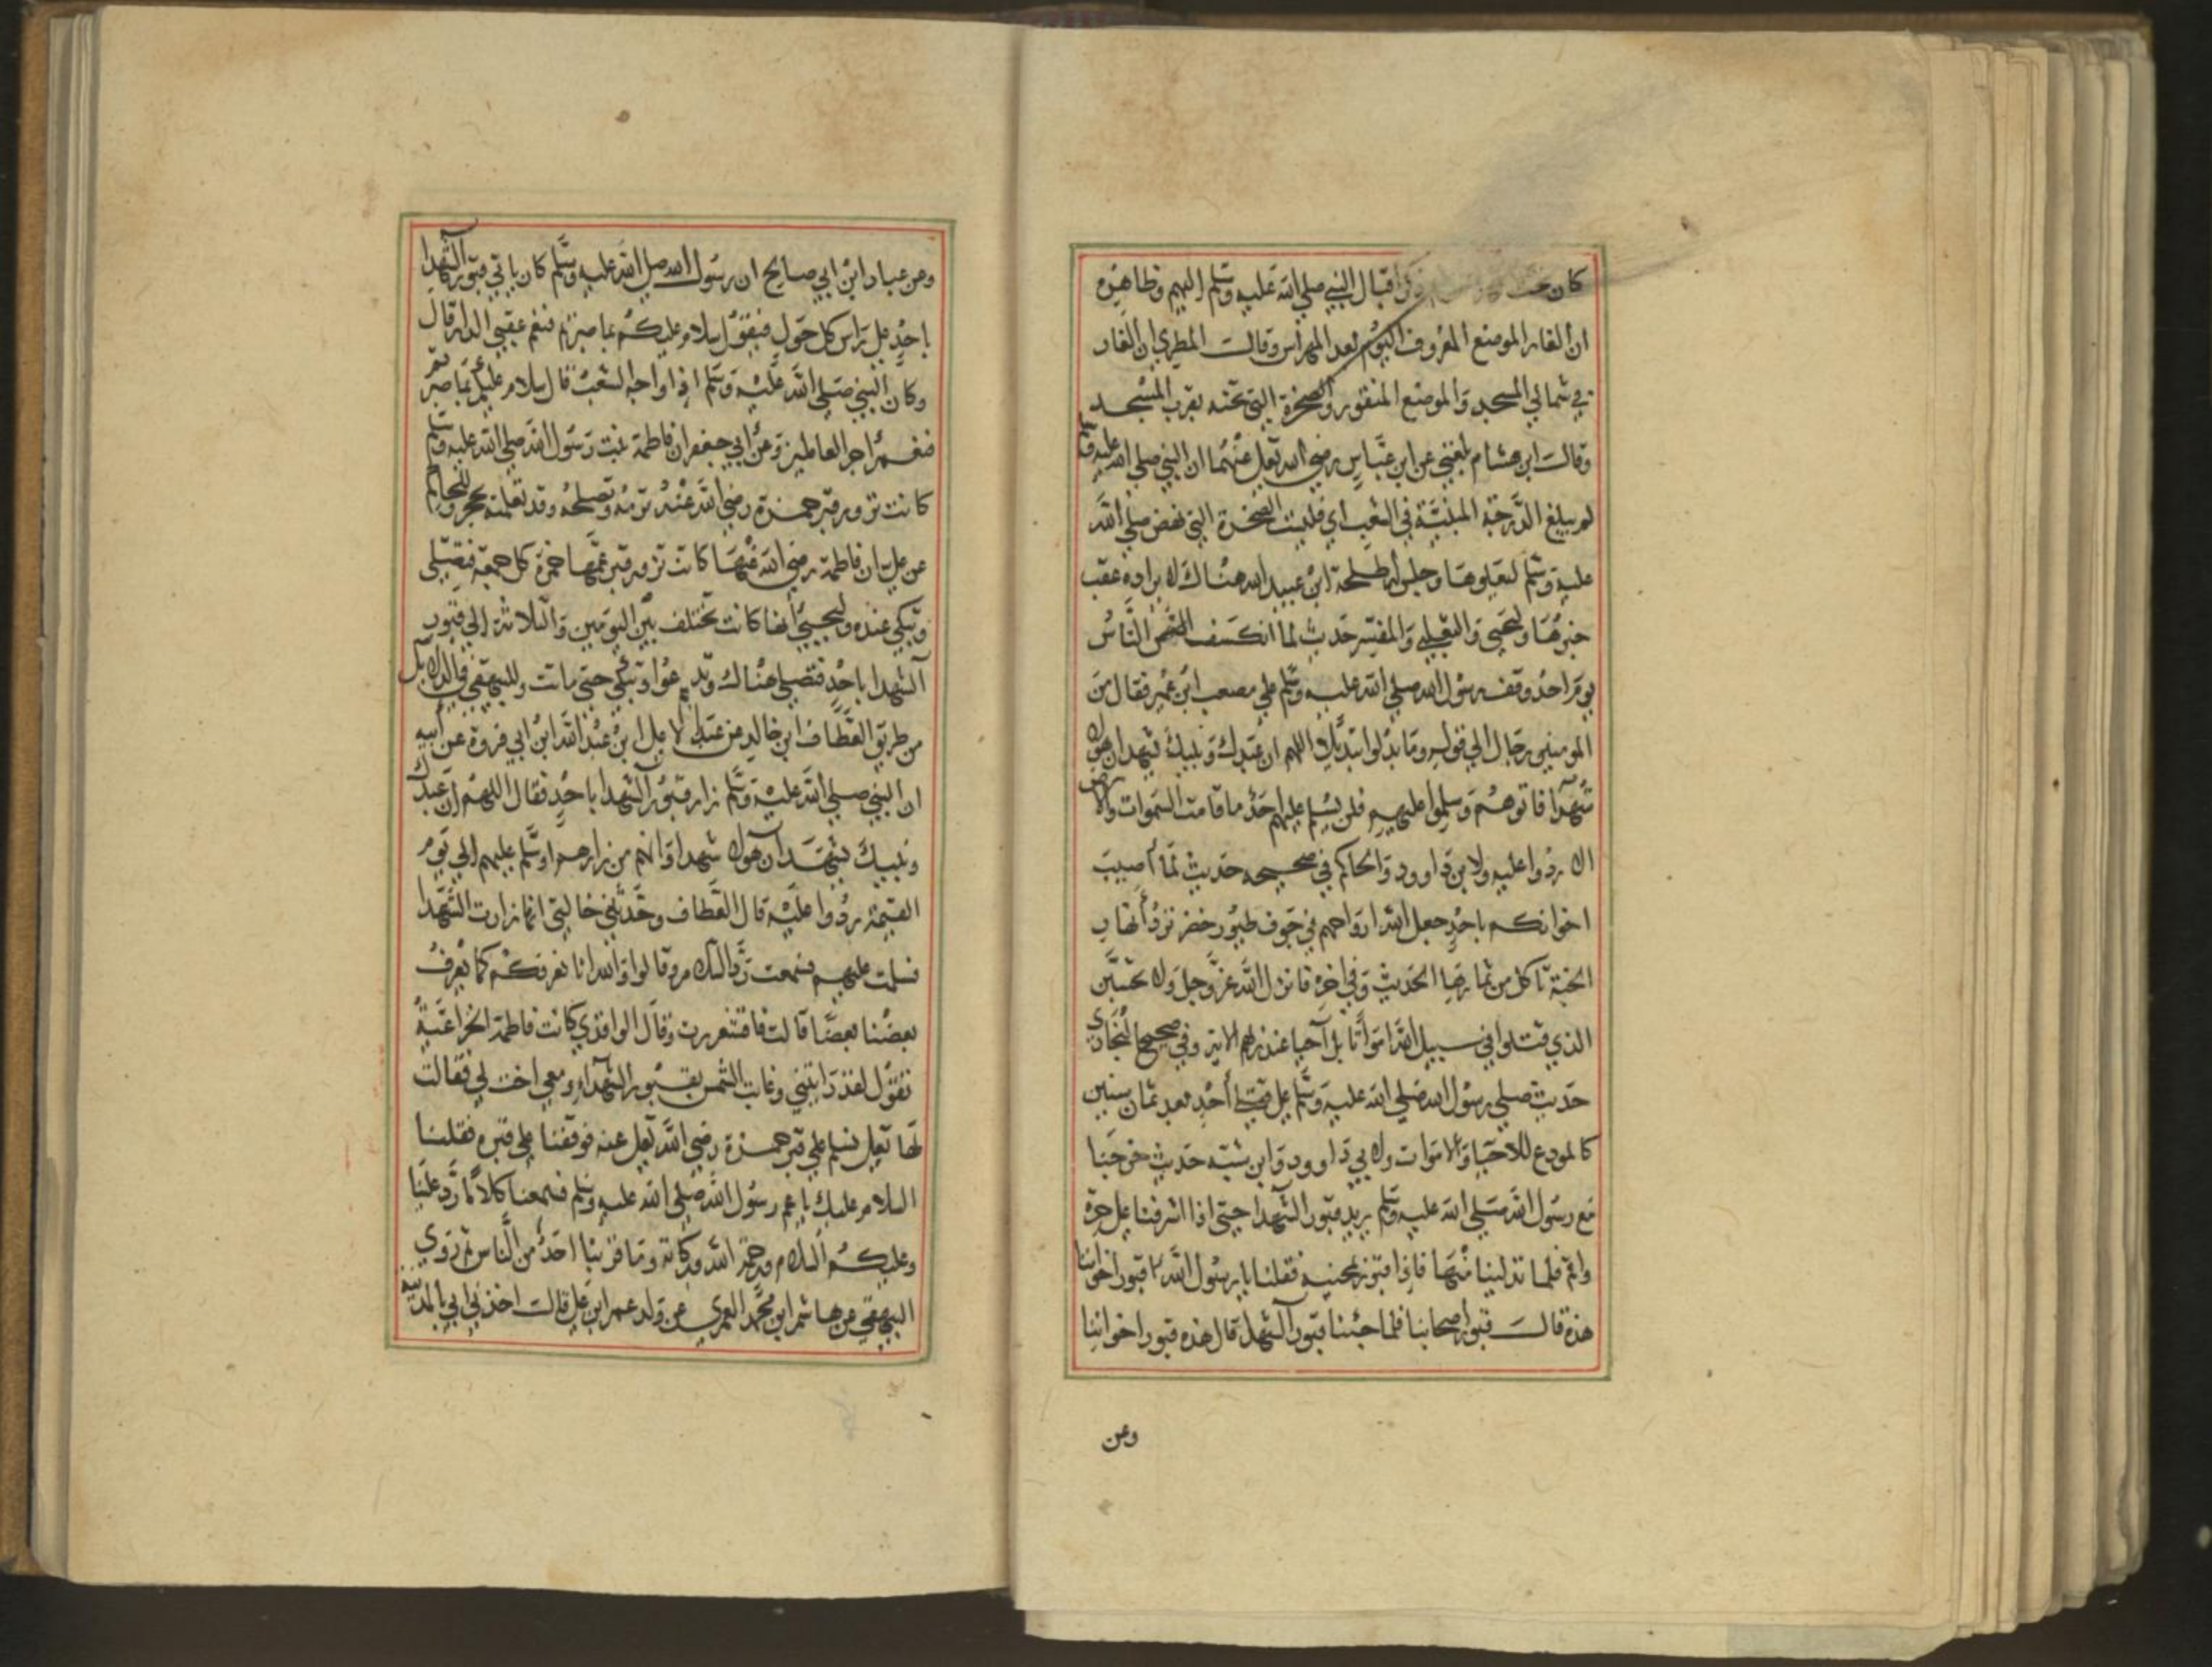 كان ذكر اقبال النبي صلى الله عليه وسلم اليهم وظاهره
ان الغار الموضع المعروف اليوم بعد المهراس وقالت المطري ان الغار
في شمالي المسجد والموضع المنقور والصخرة التي تحته بقرب المسجد
وقالت ابن هشام بلغني عن ابن عباس رضي الله تعلى عنهما ان النبي صلى الله عليه وسلم
لم يبلغ الدرجة المبنية في الشعب اي فليست الصخرة التي نهض صلى الله
عليه وسلم ليعلوها وجلس له طلحة ابن عبيد الله هناك لا يراده عقب
خبرها وليحيى والثعلبي والمفسر حديث لما انكشف الناس
يوم احد وقف رسول الله صلى الله عليه وسلم على مصعب ابن عمير فقال من
المومنين رجال الى قوله وما بدلوا تبديلا اللهم ان عبدك ونبيك يشهد ان هولا
شهدا فاتوهم وسلموا عليهم فلن يسلم عليهم احد ما قامت السموات والارض
الا ردوا عليه ولابن داوود والحاكم في صحيحه حديث لما اصيب
اخوانكم باحد جعل الله ارواحهم في جوف طيور خضر تزد انهار
الجنة تاكل من ثمارها الحديث وفي اخره فانزل الله عز وجل ولا تحسبن
الذي قتلوا في سبيل الله امواتا بل احيا عند ربهم الايتر وفي صحيح البخاري
حديث صلى رسول الله صلى الله عليه وسلم على قتلى احد بعد ثمان سنين
كالمودع للاحيا والاموات ولابي داوود وابن شبه حديث خرجنا
مع رسول الله صلى الله عليه وسلم يريد قبور الشهدا حتى اذا اشرفنا على حرة
واقم فلما تدلينا منها فاذا قبور بمحنيه فقلنا يا رسول الله قبور اخواننا
هذه قالت قبور اصحابنا فلما جئنا قبور الشهدا قال هذه قبور اخواننا
وعن
وعن عباد ابن ابي صالح ان رسول الله صلى الله عليه وسلم كان ياتي قبور الشهدا
باحد على راس كل حول فيقول سلام عليكم بما صبرتم فنعم عقبى الدار قال
وكان النبي صلى الله عليه وسلم اذا واجه الشعب قال سلام عليكم بما صبرتم
فنعم اجر العاملين وعن ابي جعفر ان فاطمة بنت رسول الله صلى الله عليه وسلم
كانت تزور قبر حمزة رضي الله عنه ترمه وتصلحه وقد تعلمته بحجر وللحاكم
عن علي ان فاطمة رضي الله عنها كانت تزور قبر عمها حمزة كل جمعة فتصلى
وتبكي عنده وليحيى انها كانت تختلف بين اليومين والثلاثة الى قبور
الشهدا باحد فتصلي هناك وتدعوا وتبكي حتى ماتت وللبيهقي في الدلايل
من طريق العطاف ابن خالد عن عبد الاعلى ابن عبد الله ابن ابي فروة عن ابيه
ان النبي صلى الله عليه وسلم زار قبور الشهدا باحد فقال اللهم ان عبدك
ونبيك يشهد ان هولا شهدا وانهم من زارهم او سلم عليهم الى يوم
القيمة ردوا عليه قال العطاف وحدثني خالتي انها زارت الشهدا
فسلمت عليهم فسمعت رد السلام وقالوا والله انا نعرفكم كما يعرف
بعضنا بعضا قالت فاقشعررت وقال الواقدي كانت فاطمة الخزاعية
تقول لقد رايتني وغابت الشمس بقبور الشهداء ومعي اخت لي فقالت
لها تعلى نسلم على قبر حمزة رضي الله تعلى عنه فوقفنا على قبره فقلنا
السلام عليك يا عم رسول الله صلى الله عليه وسلم فسمعنا كلاما رد علينا
وعليكم السلام ورحمة الله وبركاته وما قربنا احد من الناس ثم روي
البيهقي عن هاشم ابن محمد العمري عن ولد عمر ابن علي قالت اخذني ابي بالمدينة